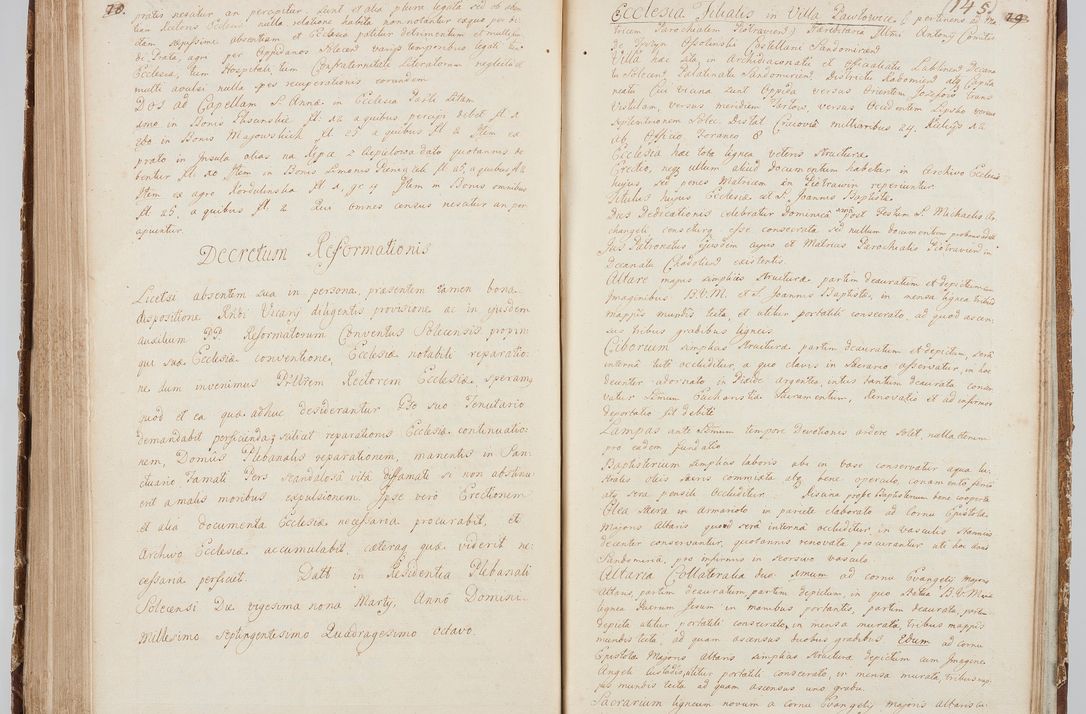 70.
pratis nescitur an percipitur. Sunt et alia plura legata sed ob
Rectoris Ecclesiæ nulla relatione habita non notantur eaque per
item sæpissime absentem et Ecclesia patitur detrimentum et multum
de Prata, agri per Oppidanos Solecen varijs temporibus legati
Ecclesia, tum Hospitali, tum Confraternitati Literatorum neglectu
multi avulsi nulla spes recuperationis eorundem
Dos ad Capellam S. Annæ in Ecclesia Parli sitam
in Bonis a quibus percipi debet fl. 1
in Bonis fl. 25 a quibus fl. 2 Item ex
prato in Insula olias na Kępie z Ciepielowa dato quotannis de
bentur fl. 20 Item in Bonis a quibus fl. 2
Item ex agro fl. 1. gr. Item in Bonis omnibus
fl. 25, a quibus fl. 2 Qui omnes census nescitur an per
cipiuntur.
Decretum Reformationis
Licetsi absentem sua in persona, præsentem tamen bona
dispositione Rndi Vicarij diligentis provisione ac in ejusdem
auxilium PP. Reformatorum Conventus Solecensis propin
quæ suæ Ecclesiæ conventione, Ecclesiæ notabili reparatio
ne dum invenimus Rectorem Ecclesiæ, speram9
quod et ea quæ adhuc desiderantur Pso suo Tenutario
demandabit perficienda; scilicet reparationis Ecclesiæ continuatio
nem, Domûs Plebanalis reparationem, manentis in San
ctuario Famati Pers scandalosâ vitâ diffamati si non abstinu
erit a malis moribus expulsionem. Ipse verò Erectionem
et alia documenta Ecclesiæ necessaria procurabit, et
Archivo Ecclesiæ accumulabit, cæteraq quæ viderit ne
cessaria perficiet. Datt in Residentia Plebanali
Solecensi Die vigesima nona Martij, Annô Domini
Millesimo Septingentesimo Quadragesimo octavo.
145.
Ecclesia Filialis in Villa Pawłowice pertinens ad Ma
tricem Parochialem Piotravien) Hæreditaria Illmi Antonij Comitis
de Tęczyn Ossoliński Castellani Sandomirien
Villa hæc sita, in Archidiaconatu et officialatu Lublinen Decana
tu Solecen, Palatinatu Sandomirien Districtu Radomien atq
neata Cui vicina sunt Oppida versus Orientem Jozefow trans
Vistulam, versus meridiem Tarłow, versus Occidentem Lipsko versus
septentrionem Solec. Distat Cracoviâ milliaribus 24. Kielcijs 12
ab Officio Foraneo 6
Ecclesia hæc tota lignea veteris structuræ
Erectio, neq ullum aliud documentum habetur in Archivo Ecclesiæ
hujus sed penes Matricem in Piotrawin reperiuntur.
Titulus hujus Ecclesiæ est S. Joannis Baptistæ.
Dies Dedicationis celebratur Dominicâ post Festum S. Michaelis Ar
changeli conseturq esse consecrata sed nullum documentum
Jus Patronatûs ejusdem cujus et Matricis Parochialis Piotravien in
Decanatu Chodelien existentis.
Altare majus simplicis structuræ partim deauratum et depictum
Imaginibus B.V.M. et S. Joannis Baptistæ, in mensa lignea tribus
mappis mundis tecta, et utitur portatili consecrato, ad quod ascen
sus tribus gradibus ligneis.
Ciborium simplicis structuræ partim deauratum et depictum, serâ
internâ tutè occluditur, a quo clavis in Sacrario asservatur, in hoc
decenter adornato in Pixide argentea, intus tantùm deaurata, conser
vatur Ssmum Eucharistiæ Sacramentum, Renovatio et ad infirmos
deportatio fit debitè
Lampas ante Ssmum tempore Devotionis ardere solet, nulla tamen
pro eadem fundatio
Baptisterium simplicis laboris ubi in vase conservatur aqua lu
stralis oleis sacris commixta atq bene operculo, conam
atq sera pensili occluditur. Piscina prope Baptisterium bene cooperta
Olea sacra in armariolo in pariete elaborato ad cornu Epistolæ
Majoris Altaris quod serâ internâ occluditur, in vasculis stanneis
decenter conservantur, quotannis renovata procurantur ati hoc anno
Sandomiriâ, pro infirmis in seorsivo vasculo
Altaria Collateralia duo 1mum ad cornu Evangelij majoris
Altaris, partim deauratum partim depictum, in quo Statua B.V.Mæ
lignea Puerum Jesum in manibus portantis, partim deaurata, partim
depicta utitur portatili consecrato, in mensa murata, tribus mappis
mundis tecta, ad quam ascensus duobus gradibus. 2dum ad cornu
Epistolæ Majoris Altaris simplicis structuræ depictum cum Imagine
Angeli Custodis, utitur portatili consecrato, in mensa murata, tribus map
pis mundis tecta ad quam ascensus uno gradu.
Sacrarium ligneum novum a cornu Evangelij majoris Altaris